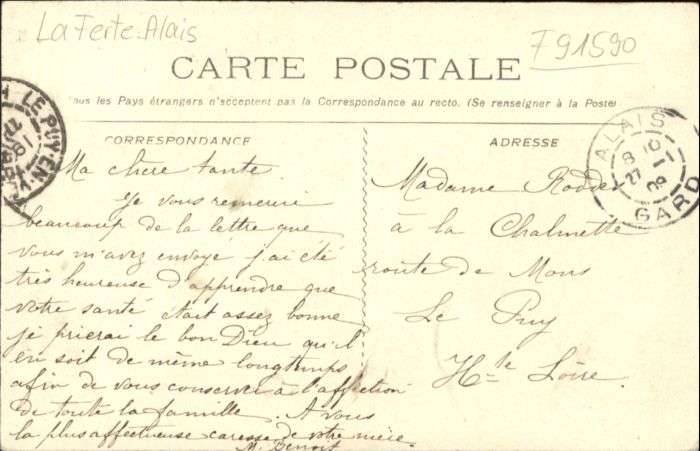 La Ferte-Alais
F91590
CARTE POSTALE
Tous les Pays étrangers n'acceptent pas la Correspondance au recto. (Se renseigner à la Poste)
CORRESPONDANCE
Ma chere tante
Je vous remercie
beaucoup de la lettre que
vous m'avez envoyé j'ai été
très heureuse d'apprendre que
votre santé était assez bonne
je prierai le bon Dieu qu'il
en soit de même longtemps
afin de vous conserver à l'affection
de toute la famille. A vous
la plus affectueuse caresse de votre nièce.
M. Benoit
ADRESSE
Madame
à la Chalmette
route de Mons
Le Puy
Hte Loire.
LE PUY-EN-V
ALAIS
8 10
27 -1
09
GARD